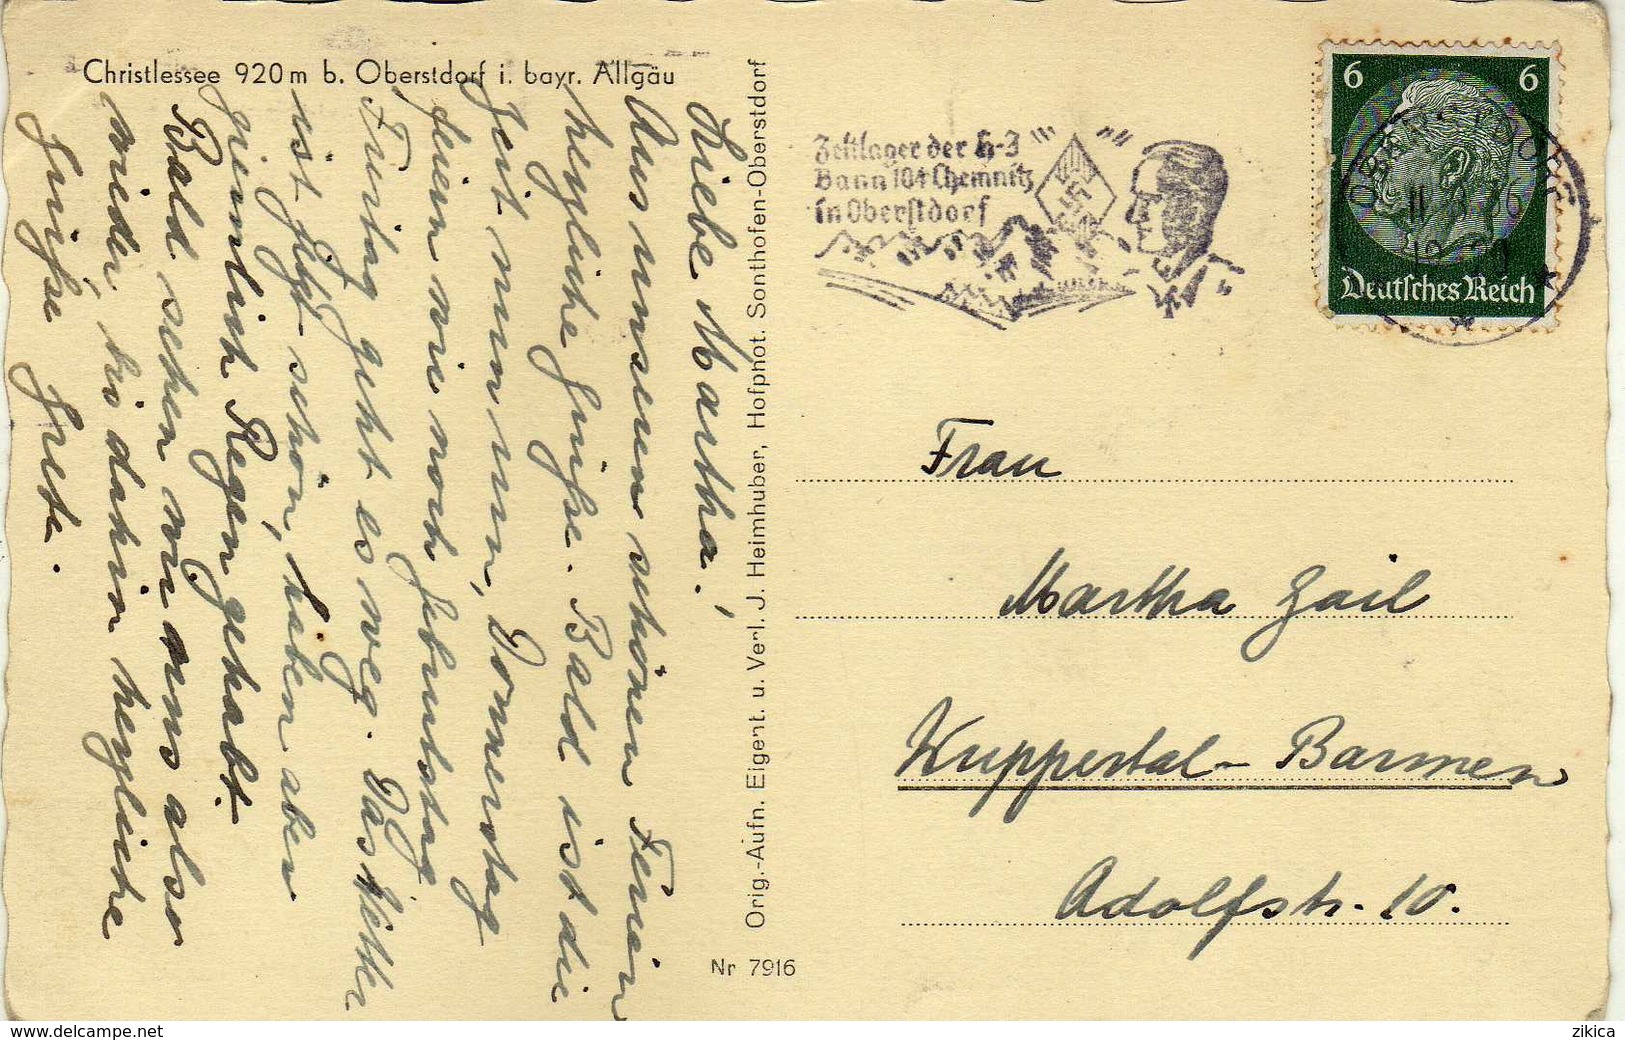 Christlessee 920 m b. Oberstdorf i. bayr. Allgäu
Liebe Martha!
Aus unseren schönen Ferien
herzliche Grüße. Bald ist die
Zeit nun um, Donnerstag
feiern wir noch Geburtstag
Freitag geht es weg. Das Wetter
ist jetzt schön, haben aber
ziemlich Regen gehabt.
Bald sehen wir uns also
wieder, bis dahin herzliche
Grüße Grete.
Orig.-Aufn. Eigent. u. Verl. J. Heimhuber, Hofphot. Sonthofen-Oberstdorf
Nr 7916
Zeltlager der H-J
Bann 104 Chemnitz
in Oberstdorf
6 6
Deutsches Reich
OBERSTDORF
Frau
Martha Gail
Wuppertal-Barmen
Adolfstr. 10.
www.delcampe.net
zikica